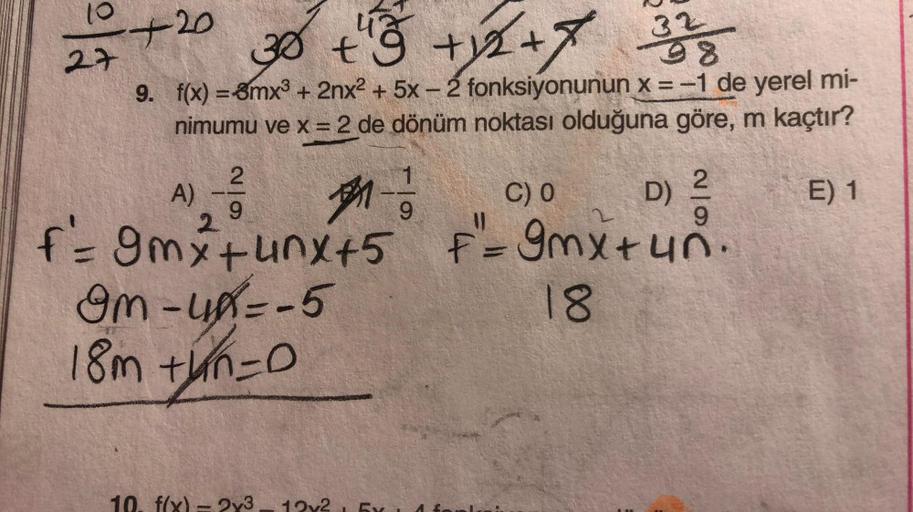 10/27 + 20 30 + 9 + 12 + 7 32/98
9. f(x) = 3mx³ + 2nx² + 5x – 2 fonksiyonunun x = –1 de yerel mi-
nimumu ve x = 2 de dönüm noktası olduğuna göre, m kaçtır?
A) –2/9 B) –1/9 C) 0 D) 2/9 E) 1
f' = 9mx² + 4nx + 5 f'' = 9mx + 4n.
9m – 4n = –5 18
18m + 4n = 0
10. f(x) = 2x³ – 12x² + 5x + 4